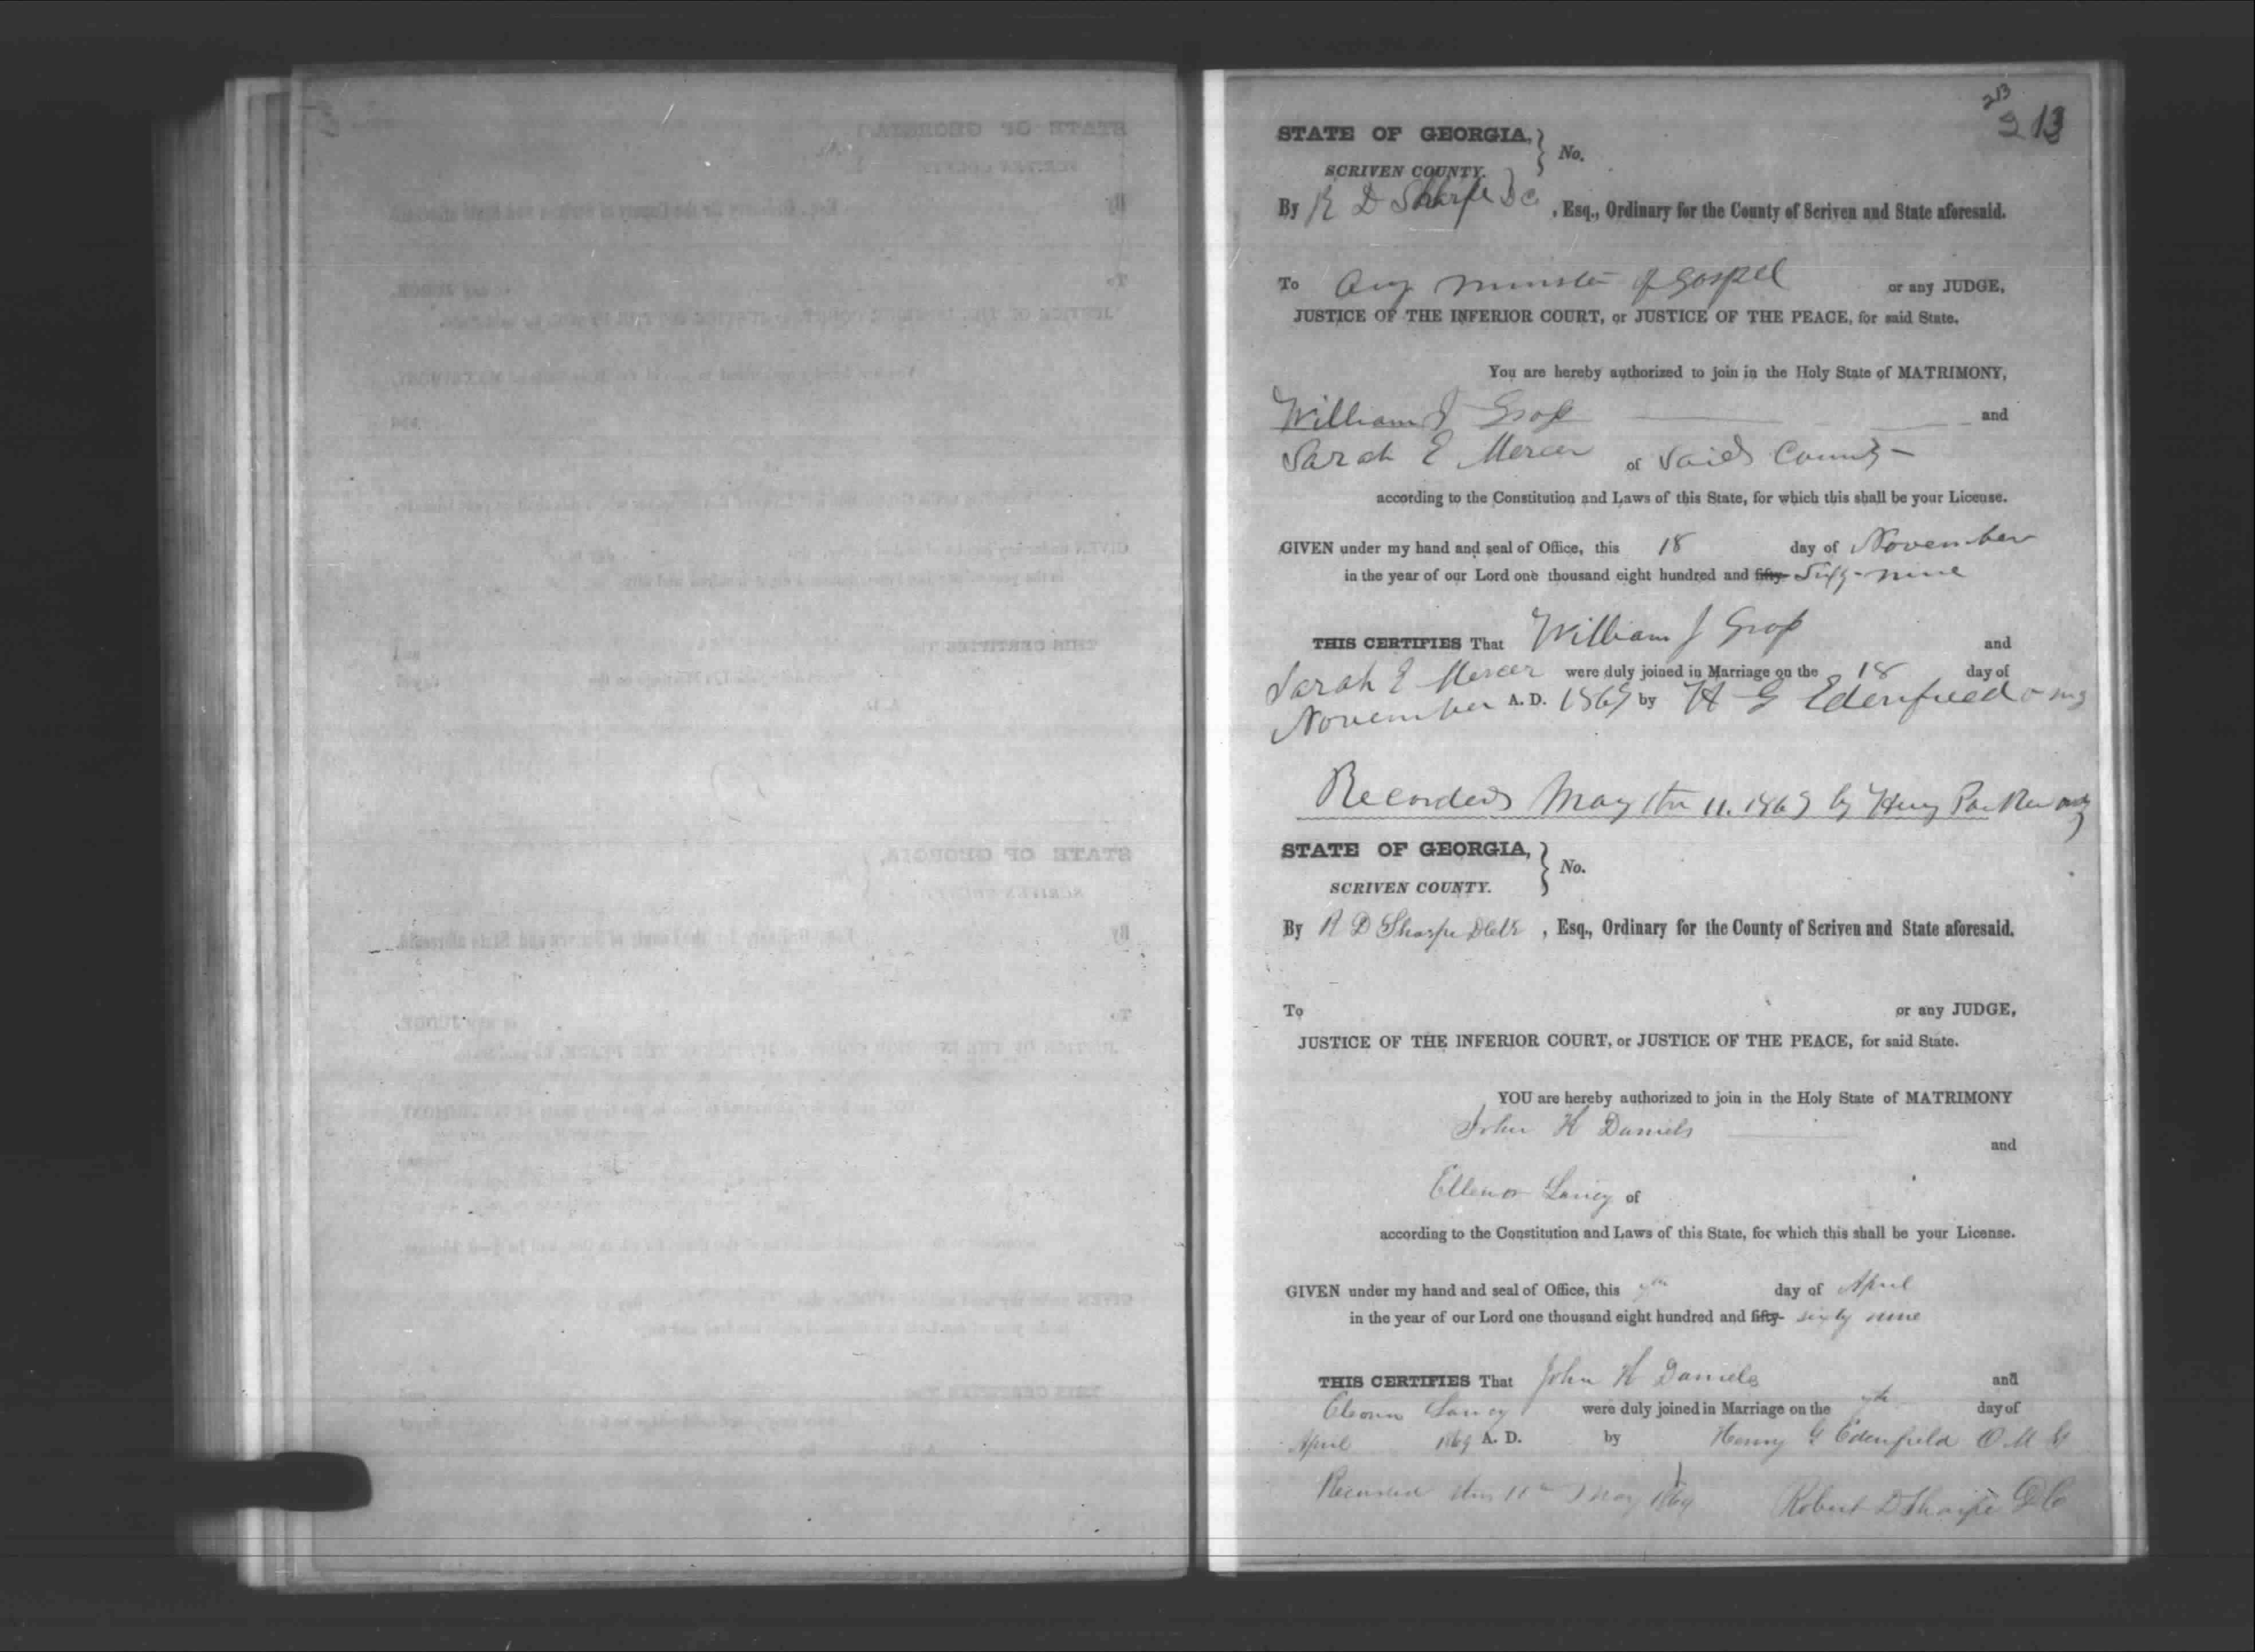 213
213
STATE OF GEORGIA, } No.
SCRIVEN COUNTY.
By R D Sharpe DC , Esq., Ordinary for the County of Scriven and State aforesaid.
To any minister of Gospel or any JUDGE,
JUSTICE OF THE INFERIOR COURT, or JUSTICE OF THE PEACE, for said State.
You are hereby authorized to join in the Holy State of MATRIMONY,
William J Gross and
Sarah E Mercer of Said County
according to the Constitution and Laws of this State, for which this shall be your License.
GIVEN under my hand and seal of Office, this 18 day of November
in the year of our Lord one thousand eight hundred and fifty- Sixty-nine
THIS CERTIFIES That William J Gross and
Sarah E Mercer were duly joined in Marriage on the 18 day of
November A. D. 1869 by H G Edenfield O M G
Recorded May the 11. 1869 by Henry Parker Ordy
STATE OF GEORGIA, } No.
SCRIVEN COUNTY.
By R D Sharpe DClk , Esq., Ordinary for the County of Scriven and State aforesaid.
To or any JUDGE,
JUSTICE OF THE INFERIOR COURT, or JUSTICE OF THE PEACE, for said State.
YOU are hereby authorized to join in the Holy State of MATRIMONY
John H Daniels
and
Ellenor Lancy of
according to the Constitution and Laws of this State, for which this shall be your License.
GIVEN under my hand and seal of Office, this day of April
in the year of our Lord one thousand eight hundred and fifty- sixty nine
THIS CERTIFIES That John H Daniels and
Lancy were duly joined in Marriage on the day of
April 1869 A. D. by Henry G Edenfield O M G
Recorded this 11th May 1869 Robert D Sharpe DC